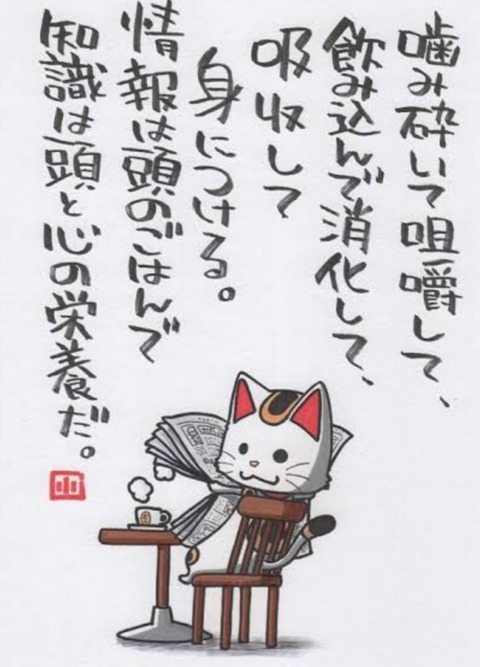 噛み砕いて咀嚼して、
飲み込んで消化して、
吸収して
身につける。
情報は頭のごはんで
知識は頭と心の栄養だ。